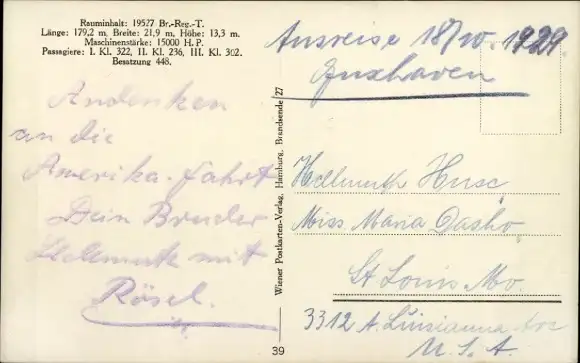 Rauminhalt: 19527 Br.-Reg.-T.
Länge: 179,2 m, Breite: 21,9 m, Höhe: 13,3 m.
Maschinenstärke: 15000 H. P.
Passagiere: I. Kl. 322, II. Kl. 236, III. Kl. 302.
Besatzung 448.
Andenken
an die
Amerika-Fahrt
Dein Bruder
Hellmuth mit
Rösel.
Wiener Postkarten-Verlag, Hamburg, Brandsende 27
39
Ausreise 18/10. 1929.
Cuxhaven
Hellmuth Husc,
Miss. Maria Dasho,
St Louis. Mo.
3312 A. Luisianna Ave
U. S. A